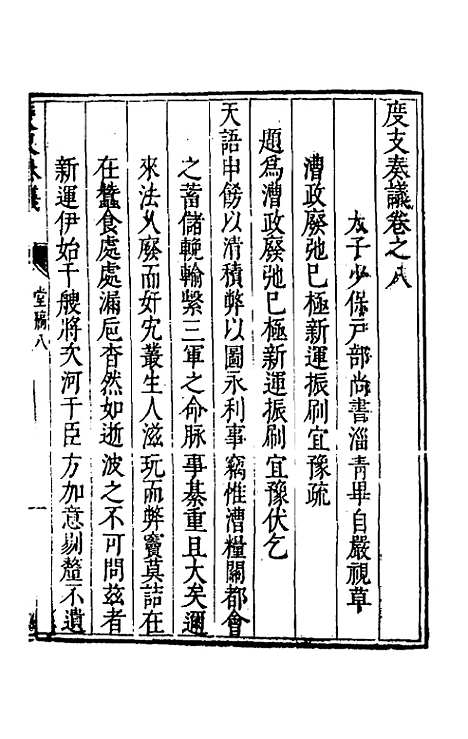 度支奏議卷之八
太子少保戶部尚書淄青畢自嚴視草
漕政廢弛已極新運振刷宜豫疏
題為漕政廢弛已極新運振刷宜豫伏乞
天語申飭以清積弊以圖永利事竊惟漕糧關都會
之蓄儲輓輸繫三軍之命脉事綦重且大矣邇
來法久廢而奸宄叢生人滋玩而弊竇莫詰在
在蠶食處處漏巵杳然如逝波之不可問茲者
新運伊始千艘將次河干臣方加意剔釐不遺
堂稿八
一